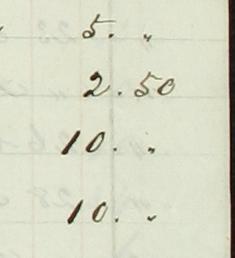 5. "
2. 50
10. "
10. "